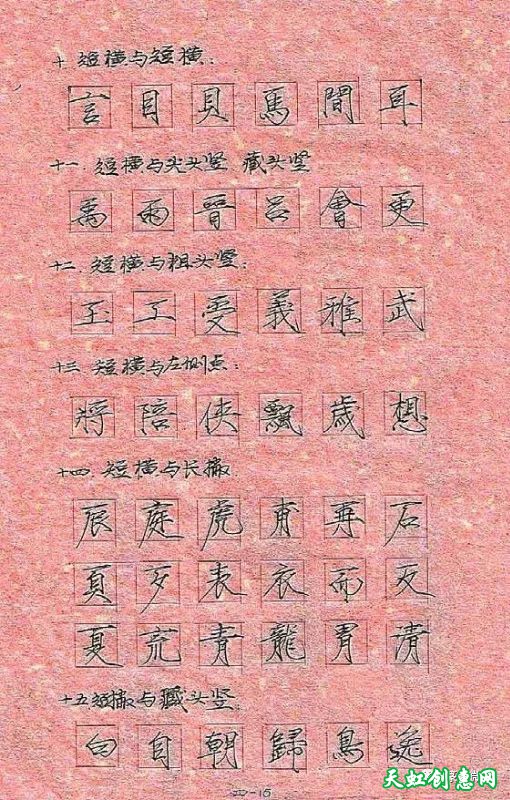 十、短横与短横：
言 目 貝 馬 間 耳
十一、短横与尖头竖 藏头竖
萬 雨 晉 呂 會 更
十二、短横与粗头竖：
玉 工 受 義 雅 武
十三、短横与左侧点：
将 陪 侠 飘 歲 想
十四、短横与长撇
辰 庭 虎 再 石
頁 歹 表 衣 而 反
夏 充 青 龍 胃 清
十五、短撇与藏头竖
白 自 朝 歸 鳥 逸
四-15
天虹创意网